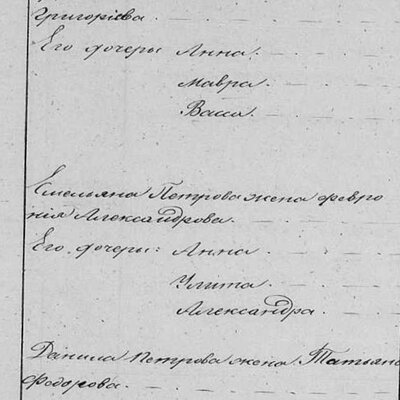 Григорiева.
Его дочеры Анна.
Мавра
Васса.
Емельяна Петрова жена Февро
нiя Александрова.
Его дочеры: Анна
Улита
Александра.
Данила Петрова жена Татьяна
Федорова.